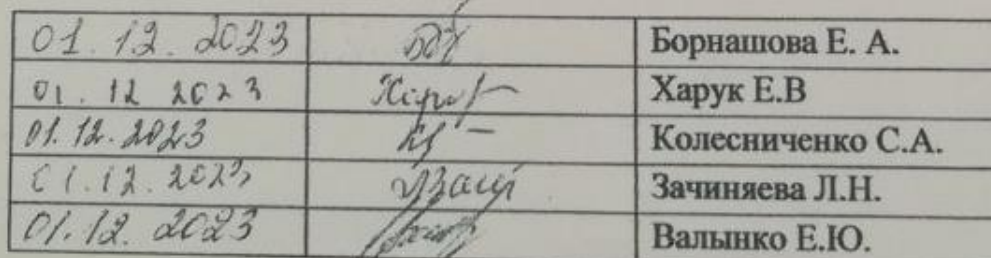 01.12.2023 Борнашова Е. А.
01.12 2023 Харук Е.В
01.12.2023 Колесниченко С.А.
01.12.2023 Зачиняева Л.Н.
01.12.2023 Валынко Е.Ю.